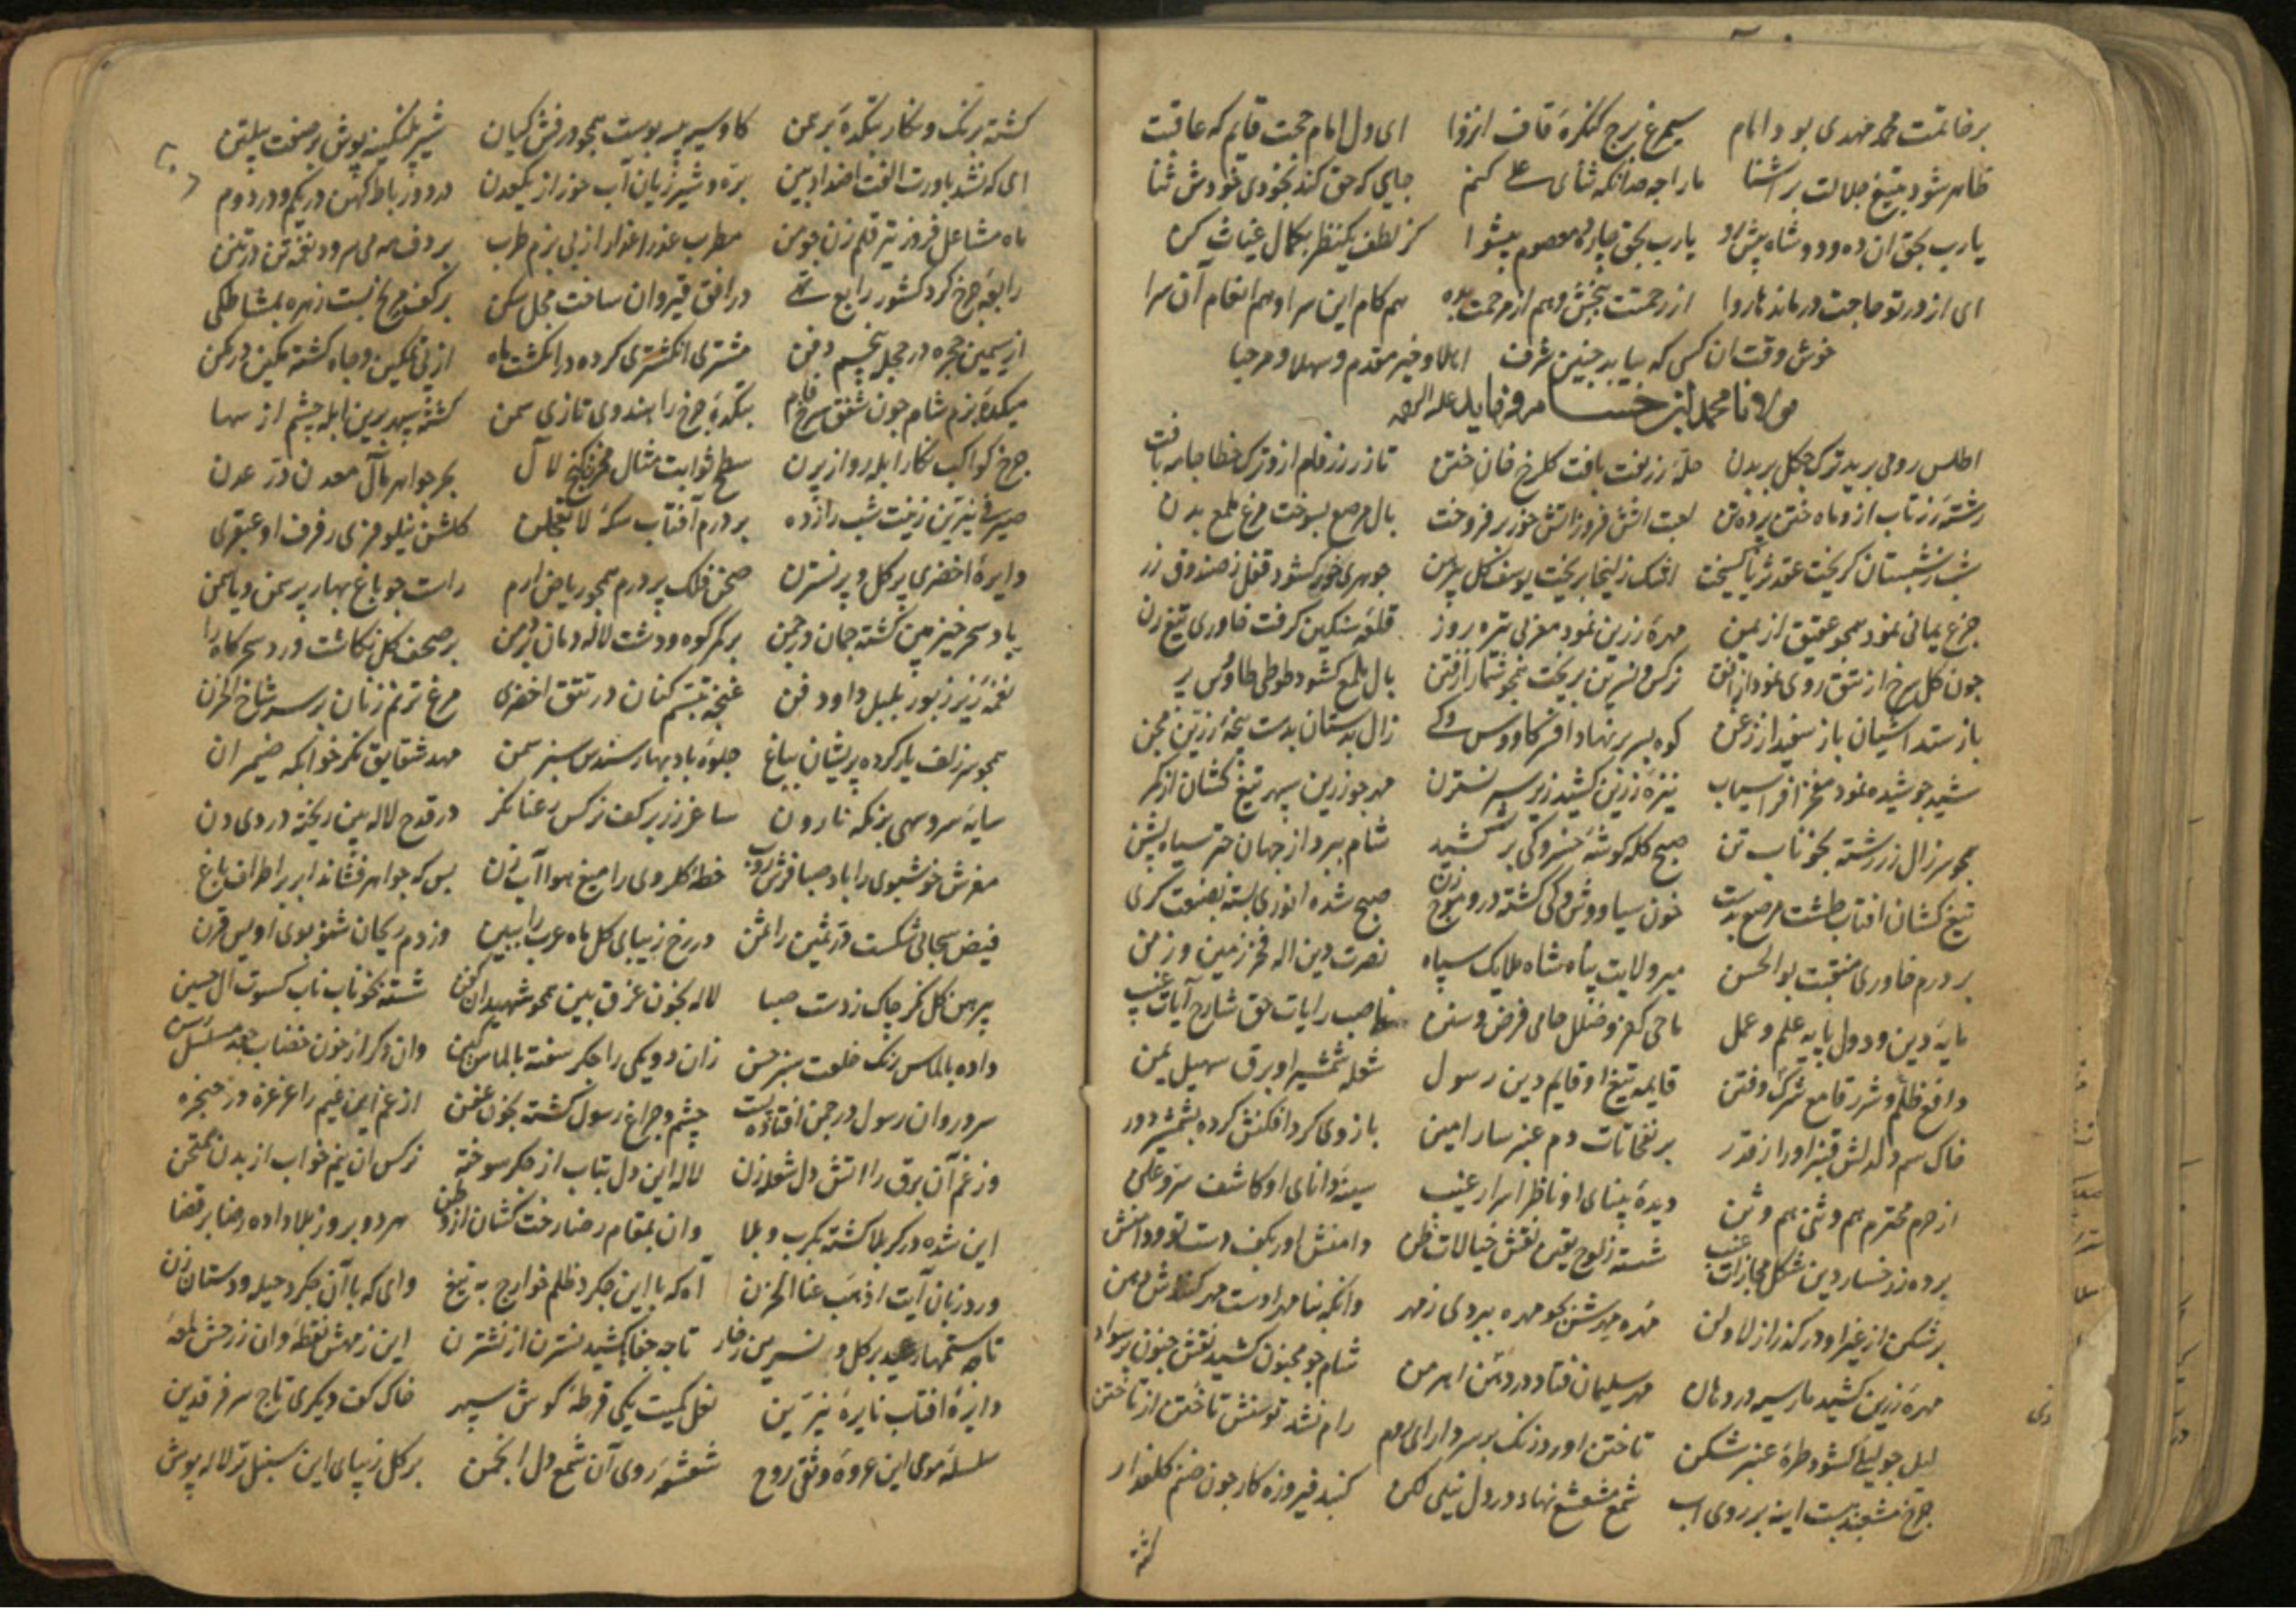 برخاتمت محمد مهدی بود امام سیمرغ برج کنکره قاف انزوا ای دل امام حجت قایم که عاقبت
ظاهر شود بتیغ جلالت بر اشنا ما را چه حد آنکه ثنای علی کنم جایی که حق کند بخودی خودش ثنا
یارب بحق ان ده و دو شاه پیش رو یارب بحق چارده معصوم پیشوا کز لطف یکنظر بکمال غیاث کن
ای از در تو حاجت درمانده‌ها روا از رحمتت ببخش و هم از مرحمت بده هم کام این سرا و هم انعام آن سرا
خوش وقت ان کسی که بیابد چنین شرف اهلا و خیر مقدم و سهلا و مرحبا
مولانا محمد ابن حسام فرماید علیه الرحمه
اطلس رومی برید ترک چکل بر بدن حله زربفت بافت کلرخ خان ختن تا زر زرفام از و ترک خطا جامه بافت
رشته زرتاب از و ماه ختن پرده تن لعبت اتش فروز اتش خور بر فروخت بال مرصع بسوخت مرغ ملمع بدن
شب ز شبستان کریخت عقد ثریا کسیخت اشک زلیخا بریخت یوسف کل پیرهن جوهری خور کشود قفل ز صندوق زر
جزع یمانی نمود همچو عقیق از یمن مهره زرین نمود مغربی تیره روز قلعه سنکین کرفت خاوری تیغ زن
چون کل سرخ از تتق روی نمود از افق نرکس و نسرین بریخت بال ملمع کشود طوطی طاوس پر
باز ستد اشیان باز سفید از زغن کوه بسر بر نهاد افسر کاووس کی زال بدستان بدست پنجه زرین مجن
شید چو شیده نمود چرخ افراسیاب نیزه زرین کشید زیر سپر نسترن مهر چو زرین سپهر تیغ کشان از کمر
همچو سر زال زر رشته بخوناب تن صبح کله کوشه خسروکی بر کشید شام ببرد از جهان چتر سیاه پشن
تیغ کشان افتاب طشت مرصع بدست خون سیاووش وکی کشته درو موج زن صبح شده انوری بسته بصنعت کری
بر درم خاوری منقبت بوالحسن میر ولایت پناه شاه ملایک سپاه نصرت دین اله فخر زمین و زمن
مایه دین و دول پایه علم و عمل ماحی کفر و ضلل حامی فرض و سنن ناصب رایات حق شارح آیات غیب
دافع ظلم و شرر قامع شرک و فتن قایمه تیغ او قایم دین رسول شعله شمشیر او برق سهیل یمن
خاک سم دلدلش قنبر او را از قدر بر نفحات دم عنبر سارا مین بازوی کرد افکنش کرده بشمشیر دور
از حرم محترم هم وثنی هم وثن دیده بینای او ناظر اسرار غیب سینه دانای او کاشف سر و علن
برده ز رخسار دین شکل مجازات عیب شسته ز لوح یقین نقش خیالات ظن دامنش اور بکف دست تو و دامنش
بر شکن از غیر او در کذر از لا و لن مهره مهرش بجو مهره ببردی ز مهر وانکه بنا مهر اوست مهر کنش در دهن
مهره زرین کشید مار سیه در دهان مهر سلیمان فتاد در دهن اهرمن شام چو مجنون کشید نقش جنون بر سواد
لیل چو لیلی کشود طره عنبر شکن تاختن اورد زنک بر سر دارای روم رام نشد توسنش تاختن از تاختن
چرخ مشعبد ببست اینه بر روی اب شمع مشعشع نهاد در دل نیلی لکن کنبد فیروزه کار چون صنم کلعذار
کشته
کشته برنک و نکار بتکده برهمن کاو سیه پیسه پوست همچو درفش کیان شیر پلنکینه پوش بر صفت پیلتن
ای که نشد باورت الفت اضداد بین بره و شیر ژیان آب خور از یکعدن در دو رباط کهن در یکم و در دوم
ماه مشاعل فروز تیر قلم زن چو من مطرب عذرا عذار از پی بزم طرب بر دف مه می سرود نغمه تن درتنن
رابعه چرخ کرد کشور رابع تهی در افق قیروان ساخت محل سکن بر کف مریخ بست زهره بمشاطکی
از سیمین حجره در محل پنجم دفن مشتری انکشتری کرده در انکشت ماه از پی تمکین و جاه کشته مکین در مکن
میکده بزم شام چون شفق سرخ فام بتکده چرخ را هندوی تازی سمن کشته سپهر برین ابله چشم از سها
چرخ کواکب نکار ابله رو از پرن سطح ثوابت مثال مخزن کنج لآل بحر جواهر مآل معدن در عدن
صیرفی نیرین زینت شب راز ده بر درم آفتاب سکه لا تعجلن کلشن نیلوفری رفرف او عبقری
دایره اخضری پر کل و پر نسترن صحن فلک پر درم همچو ریاض ارم راست چو باغ بهار پر سمن و یاسمن
باد سحر خیز بین کشته چمان در چمن بر کمر کوه و دشت لاله دمان بر دمن بر صحف کل نکاشت ورد سحرکاه را
نغمه زیر زبور بلبل داود فن غنچه تبسم کنان در تتق اخضری مرغ ترنم زنان بر سر شاخ الحزن
همچو سر زلف یار کرده پریشان بباغ جلوه باد بهار سندس سبز سمن مهد شقایق نکر خوابکه ضیمران
سایه سرو سهی بزمکه نارون ساغر زر بر کف نرکس رعنا نکر در قدح لاله بین ریخته دردی دن
مفرش خوشبوی را باد صبا فرش روب خطه کلروی را میغ هوا آب زن بس که جواهر فشاند ابر بر اطراف باغ
فیض سحابی شکست در ثمین را ثمن در رخ زیبای کل ماه عرب را ببین وز دم ریحان شنو بوی اویس قرن
پیرهن کل نکر چاک ز دست صبا لاله بخون غرق بین همچو شهیدان کفن شسته بخوناب ناب کسوت آل حسین
داده بالماس رنک خلعت سبز حسن زان دو یکی را جکر سفته بالماس کین وان دکر از خون خضاب جعد مسلسل رسن
سرو روان رسول در چمن افتاده پست چشم و چراغ رسول کشته بخون عفن از غم این غیم را غرغره در حنجره
وز غم آن برق را اتش دل شعله زن لاله این دل بتاب از جکر سوخته نرکس ان نیم خواب از بدن ممتحن
این شده در کربلا کشته بکرب و بلا وان بمقام رضا رخت کشان از وطن هر دو بروز بلا داده رضا بر قضا
ورد زبان آیت اذهب عنا الحزن آه که با این چکرد ظلم خوارج به تیغ وای که با آن چکرد حیله و دستان زن
تا چه ستمها رسید بر کل و نسرین ز خار تا چه جفا کشید نسترن از نشترن این ز مهش نقطه وان ز رخش لمعه
دایره افتاب نایره نیرین نعل کمیت یکی قرطه کوش سپهر خاک کف دیکری تاج سر فرقدین
سلسله موی این عروه وثقی روح شعشعه روی آن شمع دل انجمن بر کل زیبای این سنبل تر لاله پوش